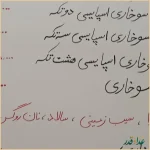 سوخاری اسپایسی دو تکه
سوخاری اسپایسی سه تکه
سوخاری اسپایسی هشت تکه
سوخاری
، سیب زمینی، سالاد، نان برگر